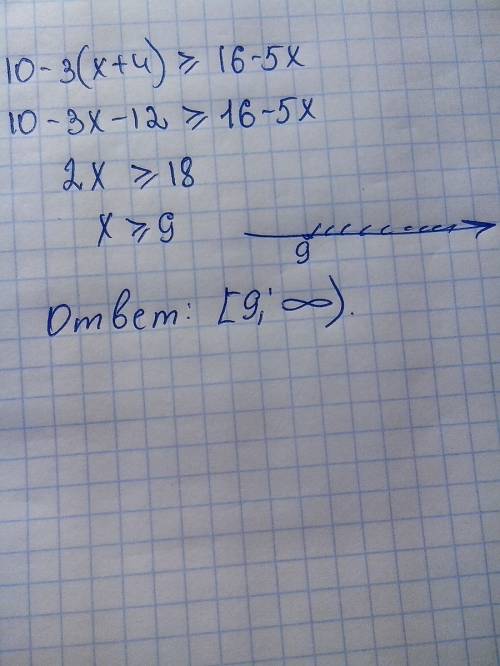 10-3(x+4) ⩾ 16-5x
10-3x-12 ⩾ 16-5x
2x ⩾ 18
x ⩾ 9
9
Ответ: [9; ∞).